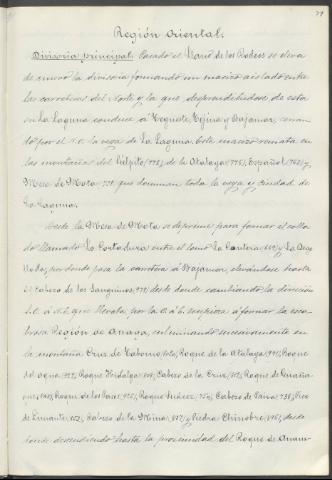 Región Oriental.
Divisoria principal. Pasado el Llano de los Rodeos se eleva
de nuevo la divisoria formando un macizo aislado entre
las carreteras del Norte y la que desprendiéndose de esta
en La Laguna conduce a Tegueste, Tejina y Bajamar, cerran-
do por el la vega de La Laguna. Este macizo remata en
las montañas del Púlpito de la Atalaya Español y
Mesa de Mota que dominan toda la vega y ciudad de
La Laguna.
Desde la Mesa de Mota se deprime para formar el colla-
do llamado La Cortadura entre el lomo La Cantera y La
por donde pasa la carretera a Bajamar, elevándose hasta
el Cabezo de los desde donde cambiando la dirección
S.O. a N.E. que llevaba por la O. a E. empieza a formar la esca-
brosa Región de Anaga, culminando sucesivamente en
la montaña Cruz de Taborno, Roque de la Atalaya, Roque
Roque Hidalgo, Cabezo de la Cruz, Roque de
Roque de los Pasos, Roque Suárez, Cabezo de Pico
de Cabezo de la Mina y Piedra Chinobre, desde
donde descendiendo hasta la proximidad del Roque de Anam-